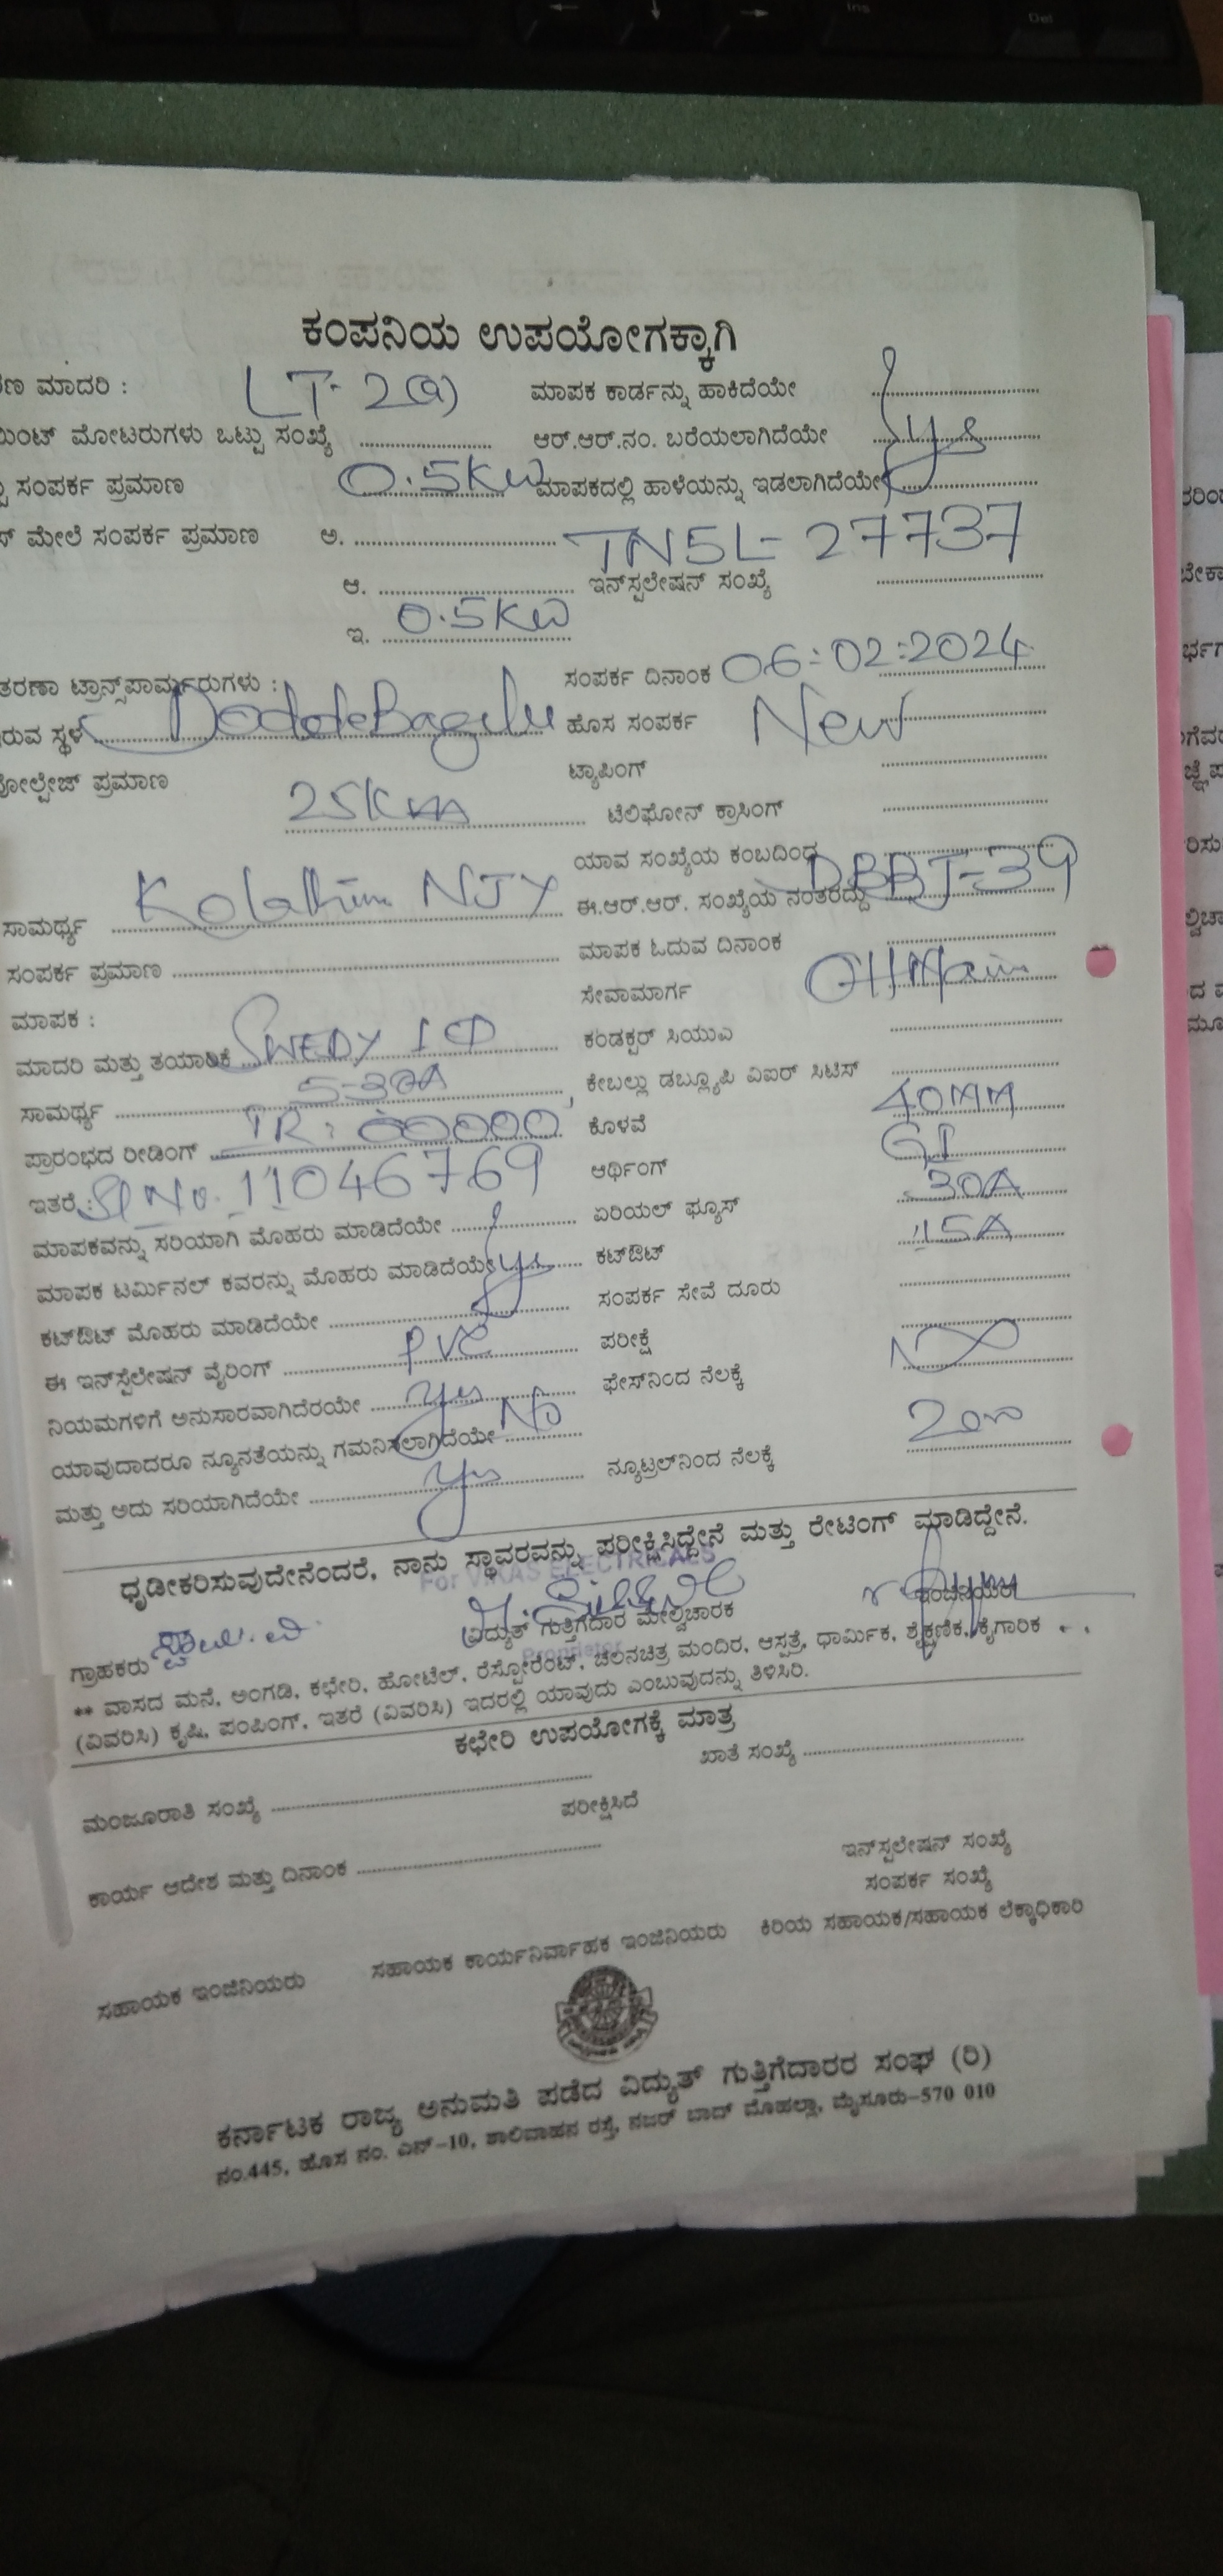 ಕಂಪನಿಯ ಉಪಯೋಗಕ್ಕಾಗಿ
ಮಾದರಿ : LT-2(a) ಮಾಪಕ ಕಾರ್ಡನ್ನು ಹಾಕಿದೆಯೇ
ಮೋಟರುಗಳು ಒಟ್ಟು ಸಂಖ್ಯೆ ಆರ್.ಆರ್.ನಂ. ಬರೆಯಲಾಗಿದೆಯೇ yes
ಸಂಪರ್ಕ ಪ್ರಮಾಣ 0.5KW ಮಾಪಕದಲ್ಲಿ ಹಾಳೆಯನ್ನು ಇಡಲಾಗಿದೆಯೇ
ಮೇಲೆ ಸಂಪರ್ಕ ಪ್ರಮಾಣ ಅ. TN5L-27737
ಆ. ಇನ್‌ಸ್ಟಲೇಷನ್ ಸಂಖ್ಯೆ
ಇ. 0.5KW
ಟ್ರಾನ್ಸ್‌ಪಾರ್ಮರುಗಳು : ಸಂಪರ್ಕ ದಿನಾಂಕ 06:02:2024
ಸ್ಥಳ DoddeBagilu ಹೊಸ ಸಂಪರ್ಕ New
ವೋಲ್ಟೇಜ್ ಪ್ರಮಾಣ ಟ್ಯಾಪಿಂಗ್
25 ಟೆಲಿಫೋನ್ ಕ್ರಾಸಿಂಗ್
ಯಾವ ಸಂಖ್ಯೆಯ ಕಂಬದಿಂದ
ಸಾಮರ್ಥ್ಯ NJY ಈ.ಆರ್.ಆರ್. ಸಂಖ್ಯೆಯ ನಂತರದ್ದು
ಸಂಪರ್ಕ ಪ್ರಮಾಣ ಮಾಪಕ ಓದುವ ದಿನಾಂಕ
ಮಾಪಕ : ಸೇವಾಮಾರ್ಗ OH Main
ಮಾದರಿ ಮತ್ತು ತಯಾರಿಕೆ ಕಂಡಕ್ಟರ್ ಸಿಯುಎ
ಸಾಮರ್ಥ್ಯ 5-30A ಕೇಬಲ್ಲು ಡಬ್ಲ್ಯೂಪಿ ವಿಐರ್ ಸಿಟಿಸ್
ಪ್ರಾರಂಭದ ರೀಡಿಂಗ್ IR: 00000 ಕೊಳವೆ 40MM
ಇತರೆ : Sl No. 11046769 ಆರ್ಥಿಂಗ್ GI
ಮಾಪಕವನ್ನು ಸರಿಯಾಗಿ ಮೊಹರು ಮಾಡಿದೆಯೇ ಏರಿಯಲ್ ಫ್ಯೂಸ್ 30A
ಮಾಪಕ ಟರ್ಮಿನಲ್ ಕವರನ್ನು ಮೊಹರು ಮಾಡಿದೆಯೇ yes ಕಟ್‌ಔಟ್ 15A
ಕಟ್‌ಔಟ್ ಮೊಹರು ಮಾಡಿದೆಯೇ ಸಂಪರ್ಕ ಸೇವೆ ದೂರು
ಈ ಇನ್‌ಸ್ಟೆಲೇಷನ್ ವೈರಿಂಗ್ PVC ಪರೀಕ್ಷೆ
ನಿಯಮಗಳಿಗೆ ಅನುಸಾರವಾಗಿದೆರಯೇ yes ಫೇಸ್‌ನಿಂದ ನೆಲಕ್ಕೆ
ಯಾವುದಾದರೂ ನ್ಯೂನತೆಯನ್ನು ಗಮನಿಸಲಾಗಿದೆಯೇ No
ಮತ್ತು ಅದು ಸರಿಯಾಗಿದೆಯೇ yes ನ್ಯೂಟ್ರಲ್‌ನಿಂದ ನೆಲಕ್ಕೆ
ಧೃಡೀಕರಿಸುವುದೇನೆಂದರೆ, ನಾನು ಸ್ಥಾವರವನ್ನು ಪರೀಕ್ಷಿಸಿದ್ದೇನೆ ಮತ್ತು ರೇಟಿಂಗ್ ಮಾಡಿದ್ದೇನೆ.
For VIKAS ELECTRICALS
ಗ್ರಾಹಕರು ವಿದ್ಯುತ್ ಗುತ್ತಿಗೆದಾರ ಮೇಲ್ವಿಚಾರಕ
Proprietor
** ವಾಸದ ಮನೆ, ಅಂಗಡಿ, ಕಛೇರಿ, ಹೋಟೆಲ್, ರೆಸ್ಟೋರೆಂಟ್, ಚಲನಚಿತ್ರ ಮಂದಿರ, ಆಸ್ಪತ್ರೆ, ಧಾರ್ಮಿಕ, ಶೈಕ್ಷಣಿಕ, ಕೈಗಾರಿಕ
(ವಿವರಿಸಿ) ಕೃಷಿ, ಪಂಪಿಂಗ್, ಇತರೆ (ವಿವರಿಸಿ) ಇದರಲ್ಲಿ ಯಾವುದು ಎಂಬುವುದನ್ನು ತಿಳಿಸಿರಿ.
ಕಛೇರಿ ಉಪಯೋಗಕ್ಕೆ ಮಾತ್ರ
ಮಂಜೂರಾತಿ ಸಂಖ್ಯೆ ಖಾತೆ ಸಂಖ್ಯೆ
ಪರೀಕ್ಷಿಸಿದೆ
ಕಾರ್ಯ ಆದೇಶ ಮತ್ತು ದಿನಾಂಕ ಇನ್‌ಸ್ಟಲೇಷನ್ ಸಂಖ್ಯೆ
ಸಂಪರ್ಕ ಸಂಖ್ಯೆ
ಸಹಾಯಕ ಇಂಜಿನಿಯರು ಸಹಾಯಕ ಕಾರ್ಯನಿರ್ವಾಹಕ ಇಂಜಿನಿಯರು ಕಿರಿಯ ಸಹಾಯಕ/ಸಹಾಯಕ ಲೆಕ್ಕಾಧಿಕಾರಿ
ಕರ್ನಾಟಕ ರಾಜ್ಯ ಅನುಮತಿ ಪಡೆದ ವಿದ್ಯುತ್ ಗುತ್ತಿಗೆದಾರರ ಸಂಘ (ರಿ)
ನಂ.445, ಹೊಸ ನಂ. ಎನ್-10, ಶಾಲಿವಾಹನ ರಸ್ತೆ, ನಜರ್ ಬಾದ್ ಮೊಹಲ್ಲಾ, ಮೈಸೂರು-570 010